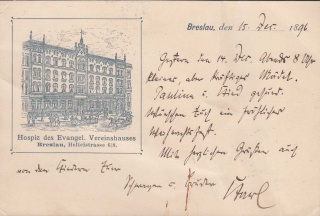 Breslau, den 15. Dez. 1896
Gestern den 14. Dez. Abends 8 Uhr
kleines, aber kräftiges Mädel.
Pauline u. Kind gesund.
Wünschen Euch ein fröhliches
Weihnachtsfest.
Mit herzlichen Grüßen auch
von den Kindern Euer
Schwager u. Bruder
Karl
Hospiz des Evangel. Vereinshauses
Breslau, Holteistrasse 6/8.